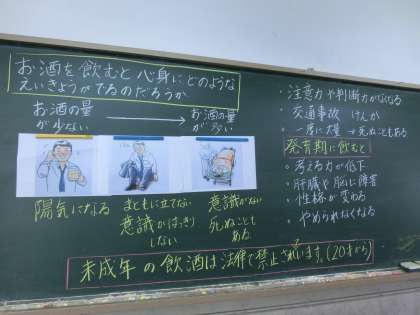 お酒を飲むと心身にどのような
えいきょうがでるのだろうか
お酒の量
が少ない
お酒の量
が多い
陽気になる
まともに立てない
意識がはっきり
しない
意識がない
死ぬことも
ある
・注意力や判断力がなくなる
・交通事故 けんか
・一度に大量→死ぬこともある
発育期に飲むと
・考える力が低下
・肝臓や脳に障害
・性格が変わる
・やめられなくなる
未成年の飲酒は法律で禁止されています。(20才から)